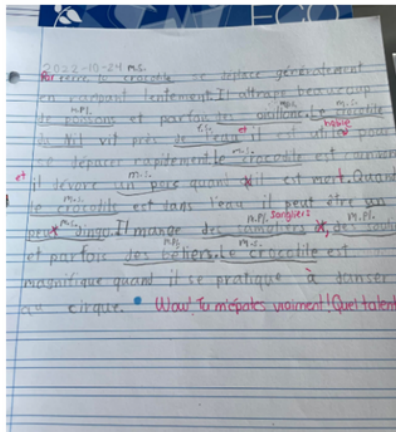 2022-10-24 m.s.
Par terre, le crocodile se déplace généralement
en rampant lentement. Il attrape beaucoup
m.pl. m.pl. m.s.
de poissons et parfois des oisillons. Le crocodile
f.s. et habile
du Nil vit près de l'eau il est utile pour
m.s.
se dépacer rapitement. Le crocodile est
et m.s.
il dévore un porc quand il est mort. Quand
m.s.
le crocodile est dans l'eau il peut être un
m.s. m.pl. sangliers m.pl.
peux dingo. Il mange des
m.pl. m.s.
et parfois des béliers. Le crocodile est
magnifique quand il se pratique à danser
au cirque. Wow! Tu m'épates vraiment! Quel talent